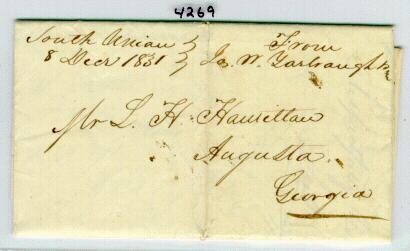 4269
South Union } From
8 Decr 1831 } Jo. W. Yarbraugh
Mr L. H. Hamilton
Augusta.
Georgia